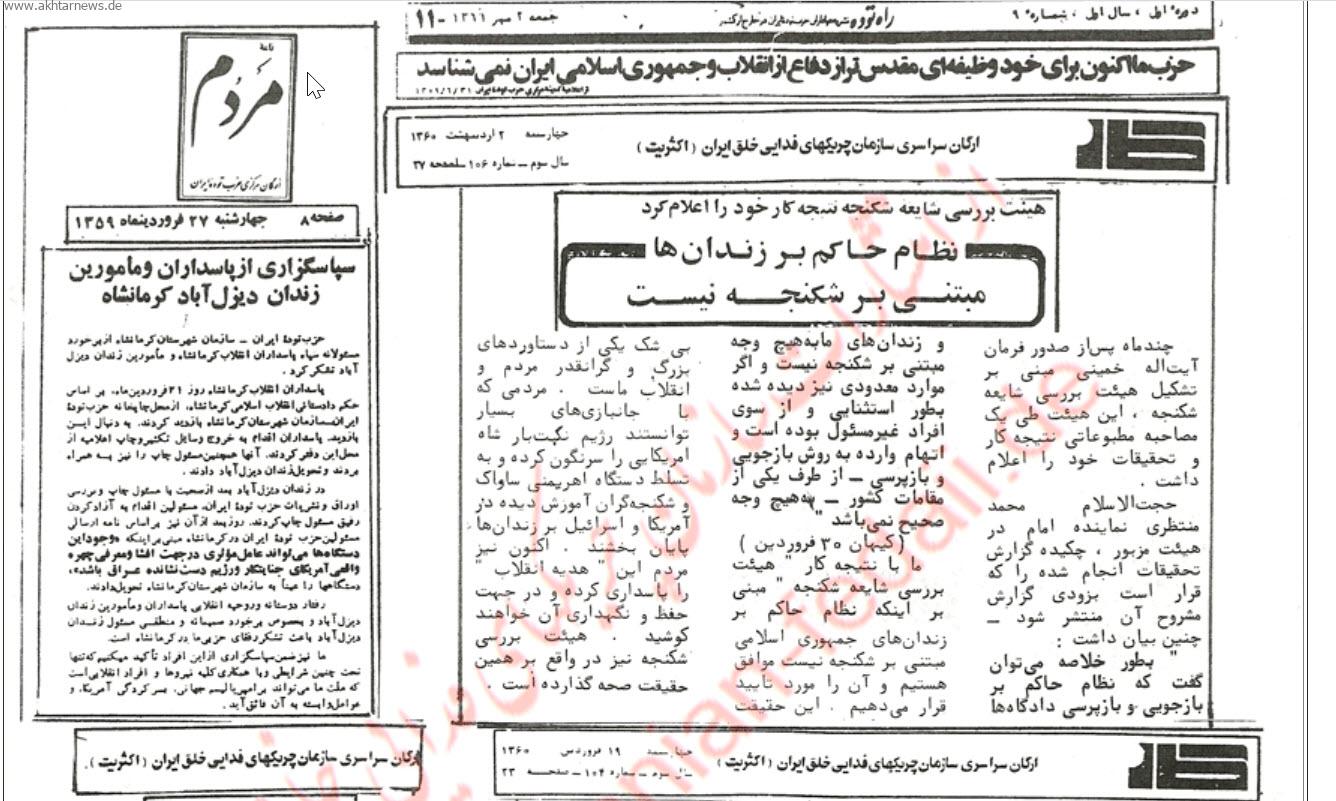 www.akhtarnews.de
دوره اول ، سال اول ، شماره ۹
راه توده
جمعه ۲ مهر ۱۳۶۱ - ۱۱
حزب ما اکنون برای خود وظیفه‌ای مقدس تر از دفاع از انقلاب و جمهوری اسلامی ایران نمی شناسد
کار
ارگان سراسری سازمان چریکهای فدایی خلق ایران (اکثریت)
چهارشنبه ۲ اردیبهشت ۱۳۶۰
سال سوم ــ شماره ۱۰۶ صفحه ۲۷
هیئت بررسی شایعه شکنجه نتیجه کار خود را اعلام کرد
نظام حاکم بر زندان ها
مبتنی بر شکنجه نیست
چندماه پس‌از صدور فرمان
آیت‌اله خمینی مبنی بر
تشکیل هیئت بررسی شایعه
شکنجه ، این هیئت طی یک
مصاحبه مطبوعاتی نتیجه کار
و تحقیقات خود را اعلام
داشت .
حجت‌الاسلام محمد
منتظری نماینده امام در
هیئت مزبور ، چکیده گزارش
تحقیقات انجام شده را که
قرار است بزودی گزارش
مشروح آن منتشر شود ــ
چنین بیان داشت :
" بطور خلاصه می‌توان
گفت که نظام حاکم بر
بازجویی و بازپرسی دادگاه‌ها
و زندان‌های ما به‌هیچ وجه
مبتنی بر شکنجه نیست و اگر
موارد معدودی نیز دیده شده
بطور استثنایی و از سوی
افراد غیرمسئول بوده است و
اتهام وارده به روش بازجویی
و بازپرسی ــ از طرف یکی از
مقامات کشور ــ به‌هیچ وجه
صحیح نمی‌باشد "
(کیهان ۳۰ فروردین )
ما با نتیجه کار " هیئت
بررسی شایعه شکنجه " مبنی
بر اینکه نظام حاکم بر
زندان‌های جمهوری اسلامی
مبتنی بر شکنجه نیست موافق
هستیم و آن را مورد تأیید
قرار می‌دهیم . این حقیقت
بی شک یکی از دستاوردهای
بزرگ و گرانقدر مردم و
انقلاب ماست . مردمی که
با جانبازی‌های بسیار
توانستند رژیم نکبت‌بار شاه
امریکایی را سرنگون کرده و به
تسلط دستگاه اهریمنی ساواک
و شکنجه‌گران آموزش دیده در
آمریکا و اسرائیل بر زندان‌ها
پایان بخشند . اکنون نیز
مردم این " هدیه انقلاب "
را پاسداری کرده و در جهت
حفظ و نگهداری آن خواهند
کوشید . هیئت بررسی
شکنجه نیز در واقع بر همین
حقیقت صحه گذارده است .
نامهٔ
مردم
ارگان مرکزی حزب توده ایران
صفحه ۸ چهارشنبه ۲۷ فروردینماه ۱۳۵۹
سپاسگزاری از پاسداران و مأمورین
زندان دیزل آباد کرمانشاه
حزب تودهٔ ایران ــ سازمان شهرستان کرمانشاه از برخورد
مسئولانه سپاه پاسداران انقلاب کرمانشاه و مأمورین زندان دیزل
آباد تشکر کرد .
پاسداران انقلاب کرمانشاه روز ۲۱ فروردین‌ماه، بر اساس
حکم دادستانی انقلاب اسلامی کرمانشاه، از محل چاپخانه حزب تودهٔ
ایران ــ سازمان شهرستان کرمانشاه بازدید کردند. به دنبال این
بازدید، پاسداران اقدام به خروج وسایل تکثیر و چاپ اعلامیه از
محل این دفتر کردند. آنها همچنین مسئول چاپ را نیز به همراه
بردند و تحویل زندان دیزل‌آباد دادند .
در زندان دیزل‌آباد بعد از صحبت با مسئول چاپ و بررسی
اوراق و نشریات حزب تودهٔ ایران، مسئولین اقدام به آزاد کردن
رفیق مسئول چاپ کردند. روز بعد از آن نیز بر اساس نامه ارسالی
مسئولین حزب تودهٔ ایران در کرمانشاه مبنی بر اینکه «وجود این
دستگاه‌ها می‌تواند عامل مؤثری در جهت افشا و معرفی چهره
واقعی آمریکای جنایتکار و رژیم دست نشانده عراق باشد»،
دستگاهها را عیناً به سازمان شهرستان کرمانشاه تحویل دادند.
رفتار دوستانه و روحیه انقلابی پاسداران و مأمورین زندان
دیزل‌آباد و بخصوص برخورد صمیمانه و منطقی مسئول زندان
دیزل‌آباد باعث تشکر رفقای حزبی ما در کرمانشاه است.
ما نیز ضمن سپاسگزاری از این افراد تأکید میکنیم که تنها
تحت چنین شرایطی و با همکاری کلیه نیروها و افراد انقلابی است
که ملت ما می‌تواند بر امپریالیسم جهانی، بسرکردگی آمریکا، و
عوامل وابسته به آن فائق آید .
کار
ارگان سراسری سازمان چریکهای فدایی خلق ایران (اکثریت)
چهارشنبه ۱۹ فروردین ۱۳۶۰
سال سوم ــ شماره ۱۰۴ ــ صفحه ۲۳
ارگان سراسری سازمان چریکهای فدایی خلق ایران (اکثریت).